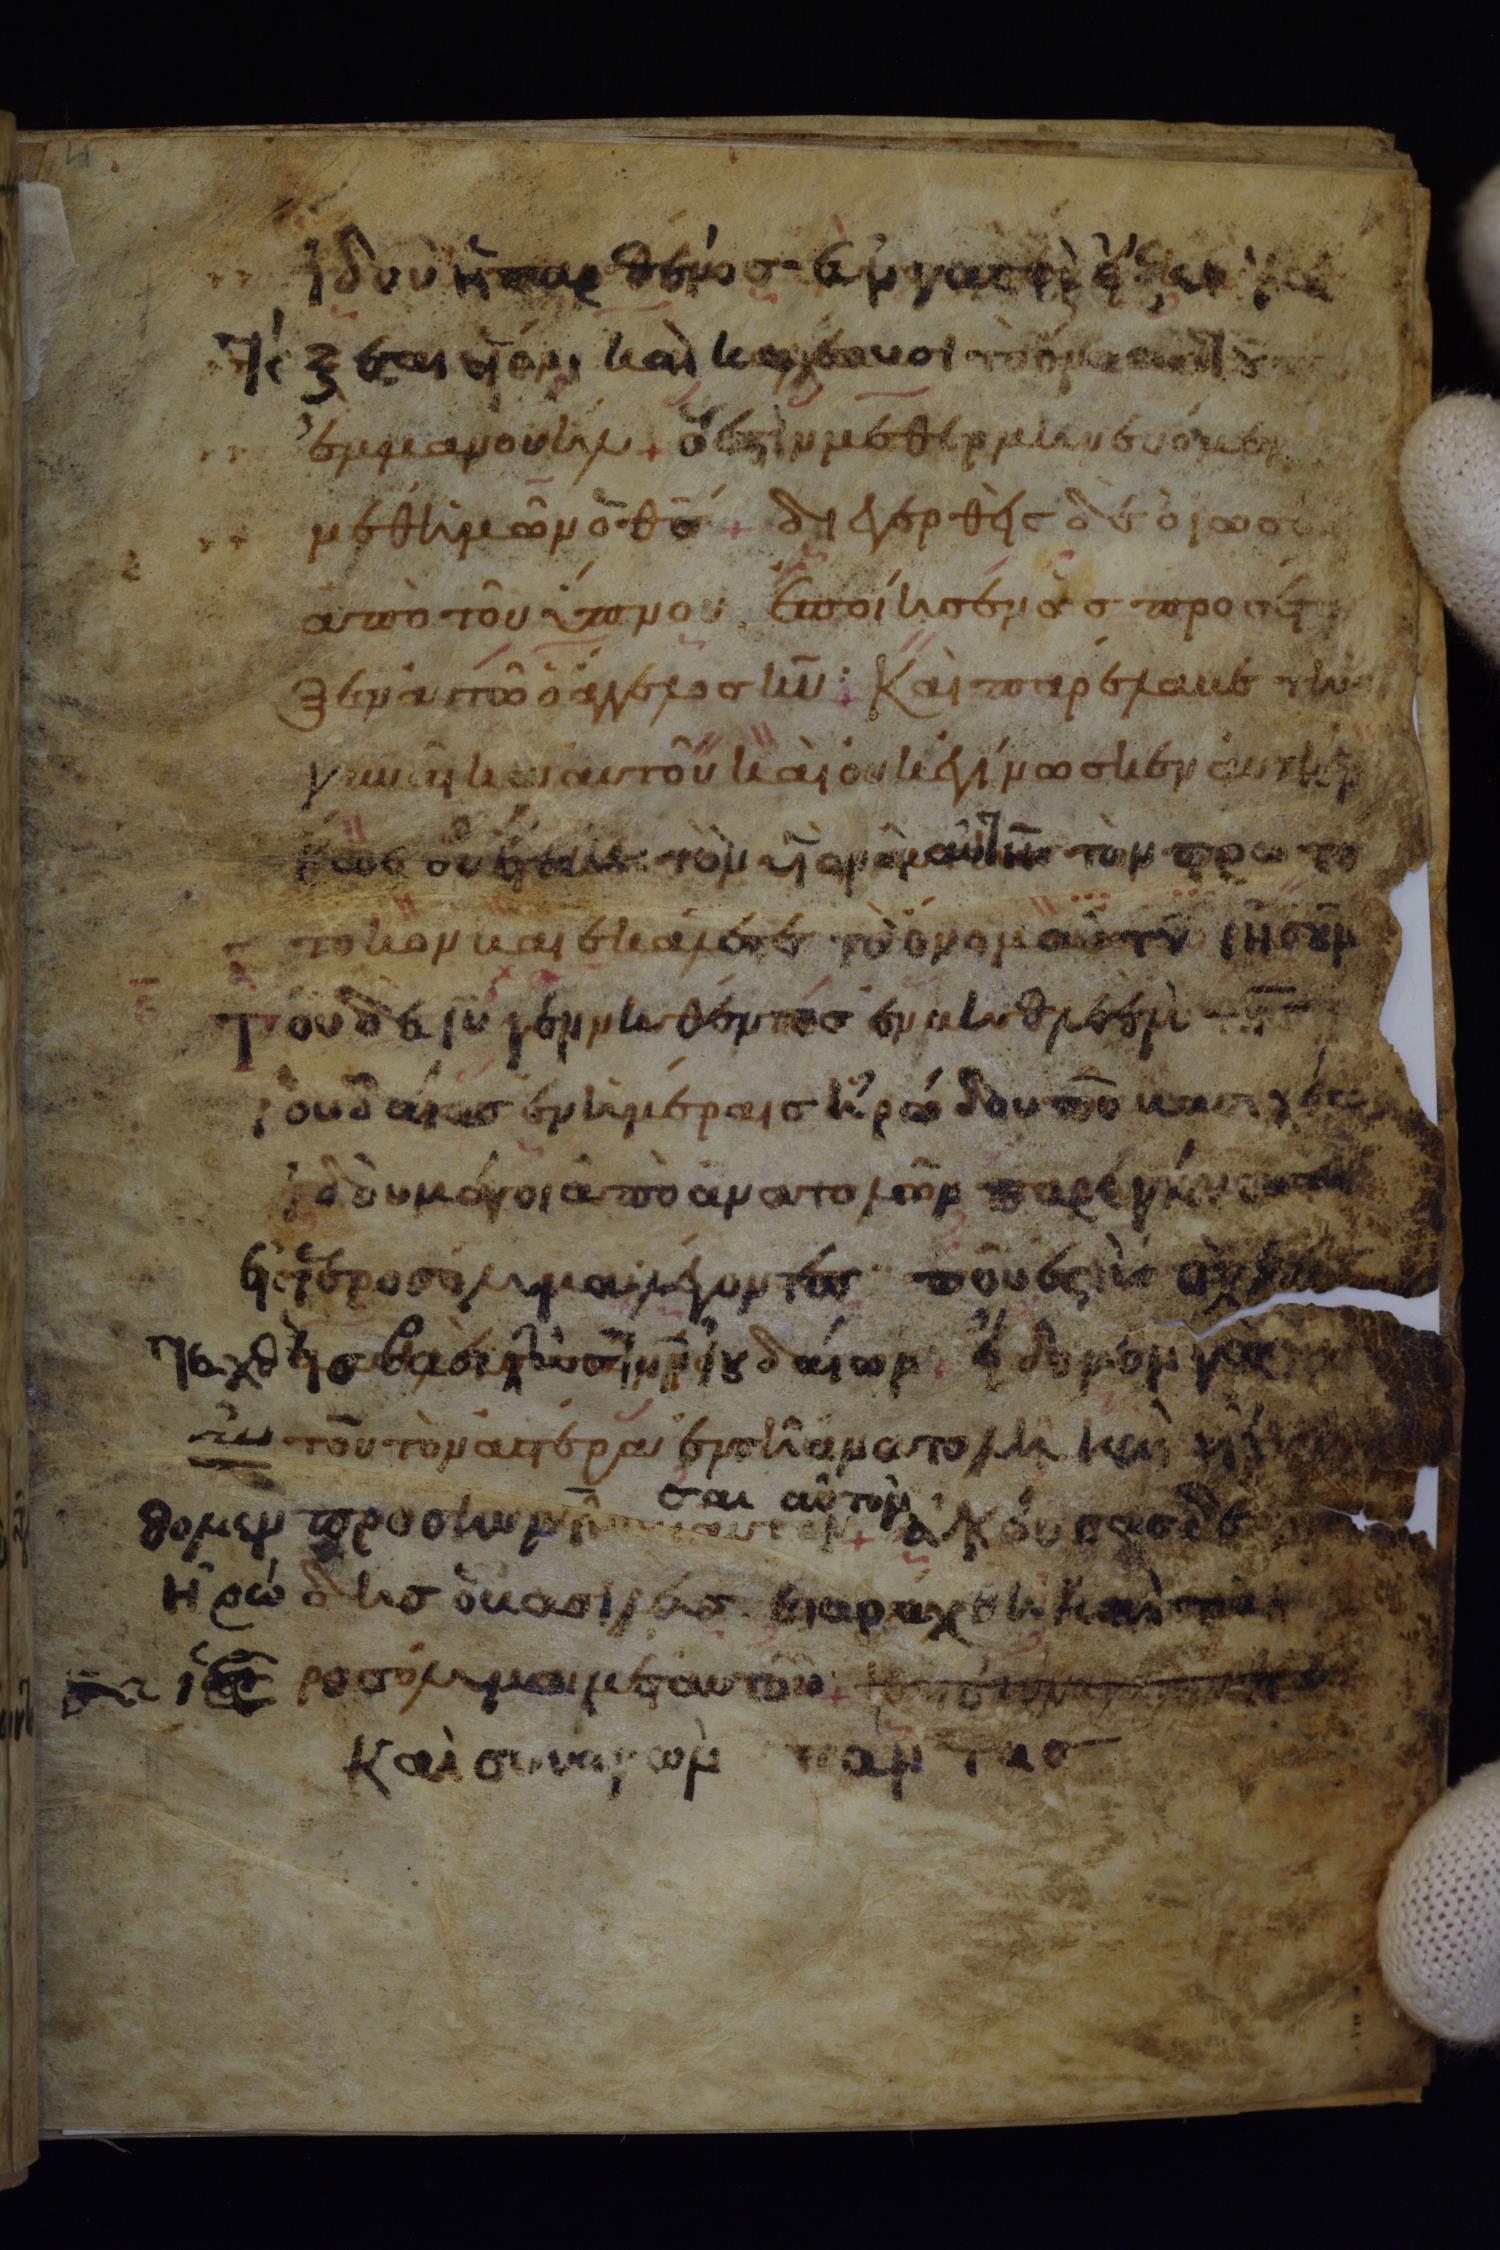 ἰδοὺ ἡ παρθένος ἐν γαστρὶ ἕξει καὶ
τέξεται υἱόν, καὶ καλέσουσι τὸ ὄνομα αὐτοῦ
ἐμμανουὴλ + ὅ ἐστιν μεθερμηνευόμενον
μεθ ἡμῶν ὁ θς + διεγερθεὶς δὲ ὁ ἰωσὴφ
ἀπὸ τοῦ ὕπνου. ἐποίησεν ὡς προσέτα
ξεν αὐτῶ ὁ ἄγγελος κυ : Καὶ παρέλαβε τὴν
γυναῖκα αὐτοῦ καὶ οὐκ ἐγίνωσκεν αὐτὴν
ἕως οὗ ἔτεκε τὸν υἱὸν αὐτῆς τὸν πρωτό
τοκον καὶ ἐκάλεσε τὸ ὄνομα αὐτοῦ ιησουν
Τοῦ δὲ ιυ γεννηθέντος ἐν βηθλεὲμ τῆς
ἰουδαίας ἐν ἡμέραις ἡρώδου τοῦ βασιλέως
ἰδοὺ μάγοι ἀπὸ ἀνατολῶν παρεγένοντο
εἰς ἱεροσόλυμα λέγοντες ποῦ ἐστὶν ὁ
τεχθεὶς βασιλεὺς τῶν ἰουδαίων. εἴδομεν γὰρ
αὐτοῦ τὸν ἀστέρα ἐν τῆ ἀνατολῆ καὶ ἤλ
θομεν προσκυνῆ
σαι αὐτὸν + ἀκούσας δὲ
ἡρώδης ὁ βασιλεὺς ἐταράχθη καὶ πᾶσα
ἱεροσόλυμα μετ αὐτοῦ +
Καὶ συναγαγὼν πάντας